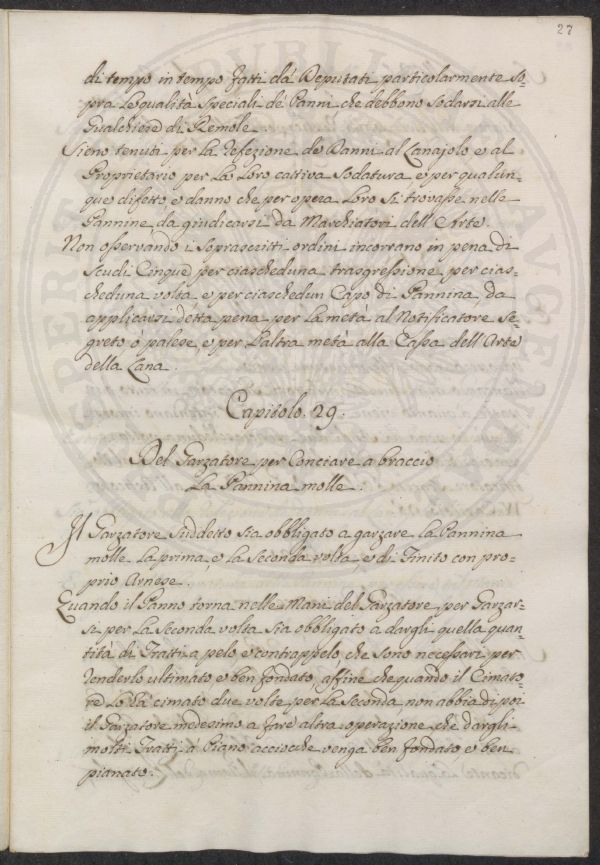 27
di tempo in tempo fatti dà Deputati particolarmente so,
pra Le qualità Speciali dé Panni, che debbono Sodarsi alle
Gualchiere di Remole.
Sieno tenuti per La refezione de Danni al Lanajolo e al
Proprietario per La Loro cattiva Sodatura, e per qualun,
que difetto e danno che per opera Loro Si trovasse nelle
Pannine da giudicarsi da Marchiatori dell'Arte.
Non osservando i Soprascritti ordini incorrano in pena di
Scudi Cinque per ciascheduna trasgressione, per cias,
cheduna volta, e per ciaschedun Capo di Pannina da
applicarsi detta pena per La metà al Notificatore Se,
greto ò palese, e per L'altra metà alla Cassa dell'Arte
della Lana.
Capitolo. 29.
Del Garzatore per Conciare a braccio
La Pannina molle.
Il Garzatore Suddetto Sia obbligato a garzare La Pannina
molle La prima, e La Seconda volta, e di Finito con pro,
prio Arnese.
Quando il Panno torna nelle Mani del Garzatore per Garzar,
si per La Seconda volta Sia obbligato a dargli quella quan,
tità di Tratti a pelo e contrappelo che Sono necessari per
renderlo ultimato e ben fondato, affine che quando il Cimato,
re Lo hà cimato due volte per La Seconda, non abbia di poi
il Garzatore medesimo a fare altra operazione, che dargli
molti Tratti à Piano acciocche venga ben fondato, e ben
pianato.